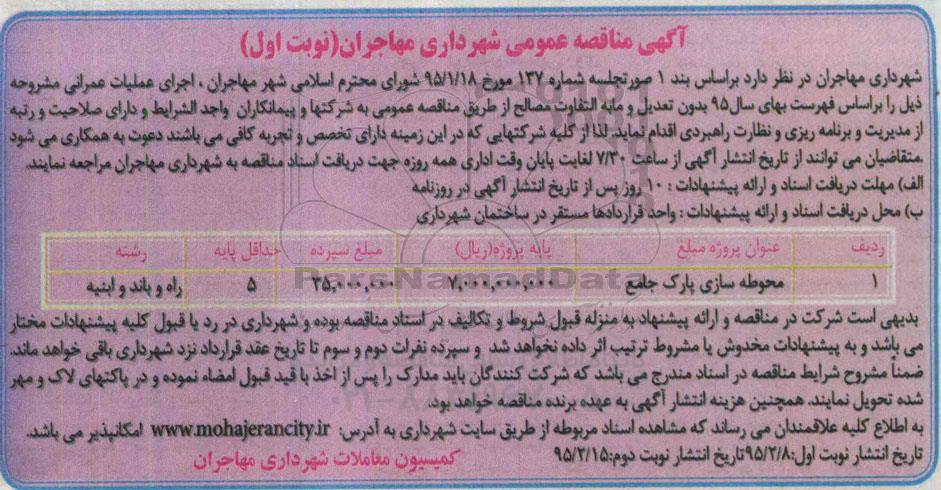 آگهی مناقصه عمومی شهرداری مهاجران(نوبت اول)
شهرداری مهاجران در نظر دارد براساس بند ۱ صورتجلسه شماره ۱۳۷ مورخ ۹۵/۱/۱۸ شورای محترم اسلامی شهر مهاجران ، اجرای عملیات عمرانی مشروحه
ذیل را براساس فهرست بهای سال۹۵ بدون تعدیل و مابه التفاوت مصالح از طریق مناقصه عمومی به شرکتها و پیمانکاران واجد الشرایط و دارای صلاحیت و رتبه
از مدیریت و برنامه ریزی و نظارت راهبردی اقدام نماید. لذا از کلیه شرکتهایی که در این زمینه دارای تخصص و تجربه کافی می باشند دعوت به همکاری می شود
.متقاضیان می توانند از تاریخ انتشار آگهی از ساعت ۷/۳۰ لغایت پایان وقت اداری همه روزه جهت دریافت اسناد مناقصه به شهرداری مهاجران مراجعه نمایند.
الف) مهلت دریافت اسناد و ارائه پیشنهادات : ۱۰ روز پس از تاریخ انتشار آگهی در روزنامه
ب) محل دریافت اسناد و ارائه پیشنهادات : واحد قراردادها مستقر در ساختمان شهرداری
ردیف عنوان پروژه مبلغ پایه پروژه(ریال) مبلغ سپرده حداقل پایه رشته
۱ محوطه سازی پارک جامع ۷,۰۰۰,۰۰۰,۰۰۰ ۳۵,۰۰۰,۰۰۰ ۵ راه و باند و ابنیه
ParsNamadData
بدیهی است شرکت در مناقصه و ارائه پیشنهاد به منزله قبول شروط و تکالیف در اسناد مناقصه بوده و شهرداری در رد یا قبول کلیه پیشنهادات مختار
می باشد و به پیشنهادات مخدوش یا مشروط ترتیب اثر داده نخواهد شد و سپرده نفرات دوم و سوم تا تاریخ عقد قرارداد نزد شهرداری باقی خواهد ماند.
ضمناً مشروح شرایط مناقصه در اسناد مندرج می باشد که شرکت کنندگان باید مدارک را پس از اخذ با قید قبول امضاء نموده و در پاکتهای لاک و مهر
شده تحویل نمایند. همچنین هزینه انتشار آگهی به عهده برنده مناقصه خواهد بود.
به اطلاع کلیه علاقمندان می رساند که مشاهده اسناد مربوطه از طریق سایت شهرداری به آدرس: www.mohajerancity.ir امکانپذیر می باشد.
تاریخ انتشار نوبت اول:۹۵/۲/۸تاریخ انتشار نوبت دوم:۹۵/۲/۱۵
کمیسیون معاملات شهرداری مهاجران